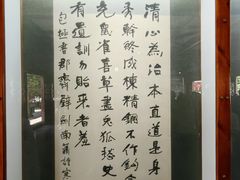 清心為治本直道是身
秀幹終成棟精鋼不作鉤倉
充鼠雀喜草盡兔狐愁史
有遺訓勿貽來者羞
包拯書郡齋壁劍南蕭